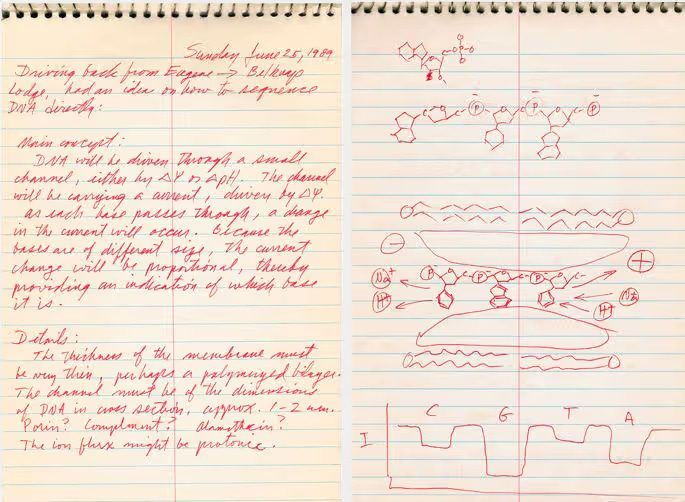 Sunday June 25, 1989
Driving back from Eugene → Belknap
Lodge, had an idea on how to sequence
DNA directly:
Main concept:
DNA will be driven through a small
channel, either by ΔΨ or ΔpH. The channel
will be carrying a current, driven by ΔΨ.
As each base passes through, a change
in the current will occur. Because the
bases are of different size, the current
change will be proportional, thereby
providing an indication of which base
it is.
Details:
The thickness of the membrane must
be very thin, perhaps a polymerized bilayer.
The channel must be of the dimensions
of DNA in cross section, approx. 1-2 nm.
Porin? Compliment? Alamethicin?
The ion flux might be protonic.
O-P-O
P P P
− +
Na+ P P P
H+ Na
H+
C G T A
I